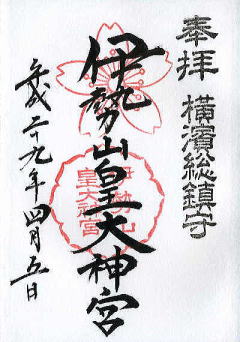 奉拝
横濱総鎮守
伊勢山皇大神宮
伊勢山
皇大神宮
平成二十九年四月五日